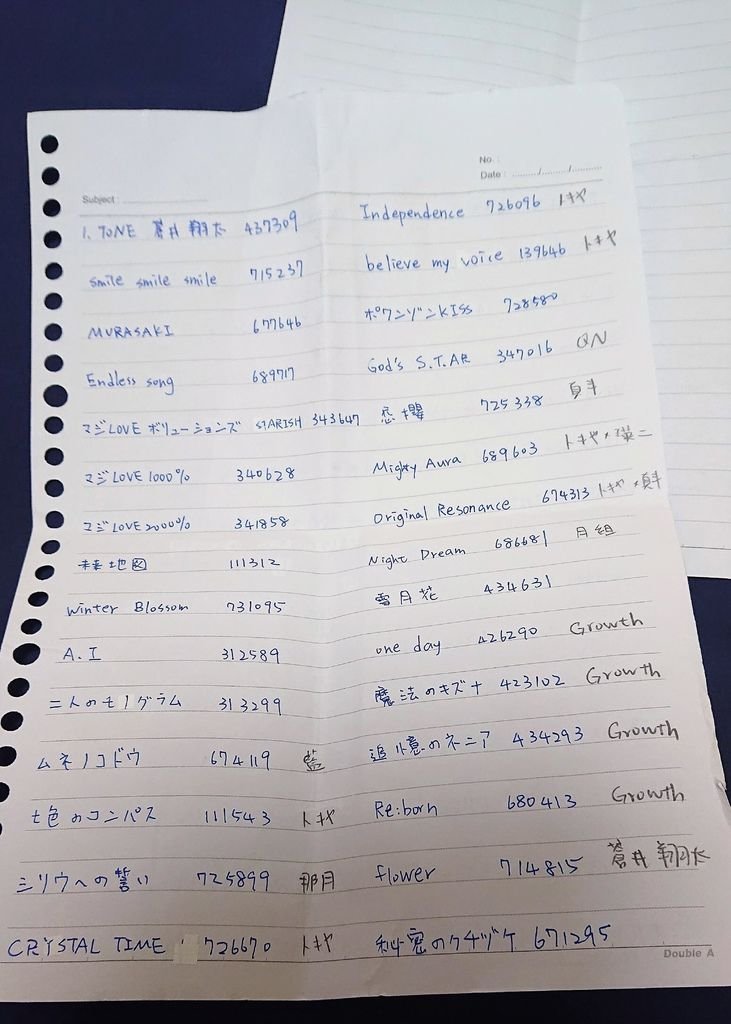 No. :
Date : ........./........./.........
Subject :
1. TONE 蒼井翔太 437309
smile smile smile 715237
MURASAKI 677646
Endless song 689717
マジLOVEボリューションズ STARISH 343647
マジLOVE 1000% 340628
マジLOVE 2000% 341858
未来地図 111312
Winter Blossom 731095
A.I 312589
二人のモノグラム 313299
ムネノコドウ 674119 藍
七色のコンパス 111543 トキヤ
シリウスへの誓い 725899 那月
CRYSTAL TIME 726670 トキヤ
Independence 726096 トキヤ
believe my voice 139646 トキヤ
ポワゾンKISS 728580
God's S.T.AR 347016 QN
恋桜 725338
Mighty Aura 689603 トキヤ
Original Resonance 674313 トキヤ
Night Dream 686681 月組
雪月花 434631
one day 426290 Growth
魔法のキズナ 423102 Growth
追憶のネニア 434293 Growth
Re:born 680413 Growth
flower 714815 蒼井翔太
秘密のクチヅケ 671295
Double A